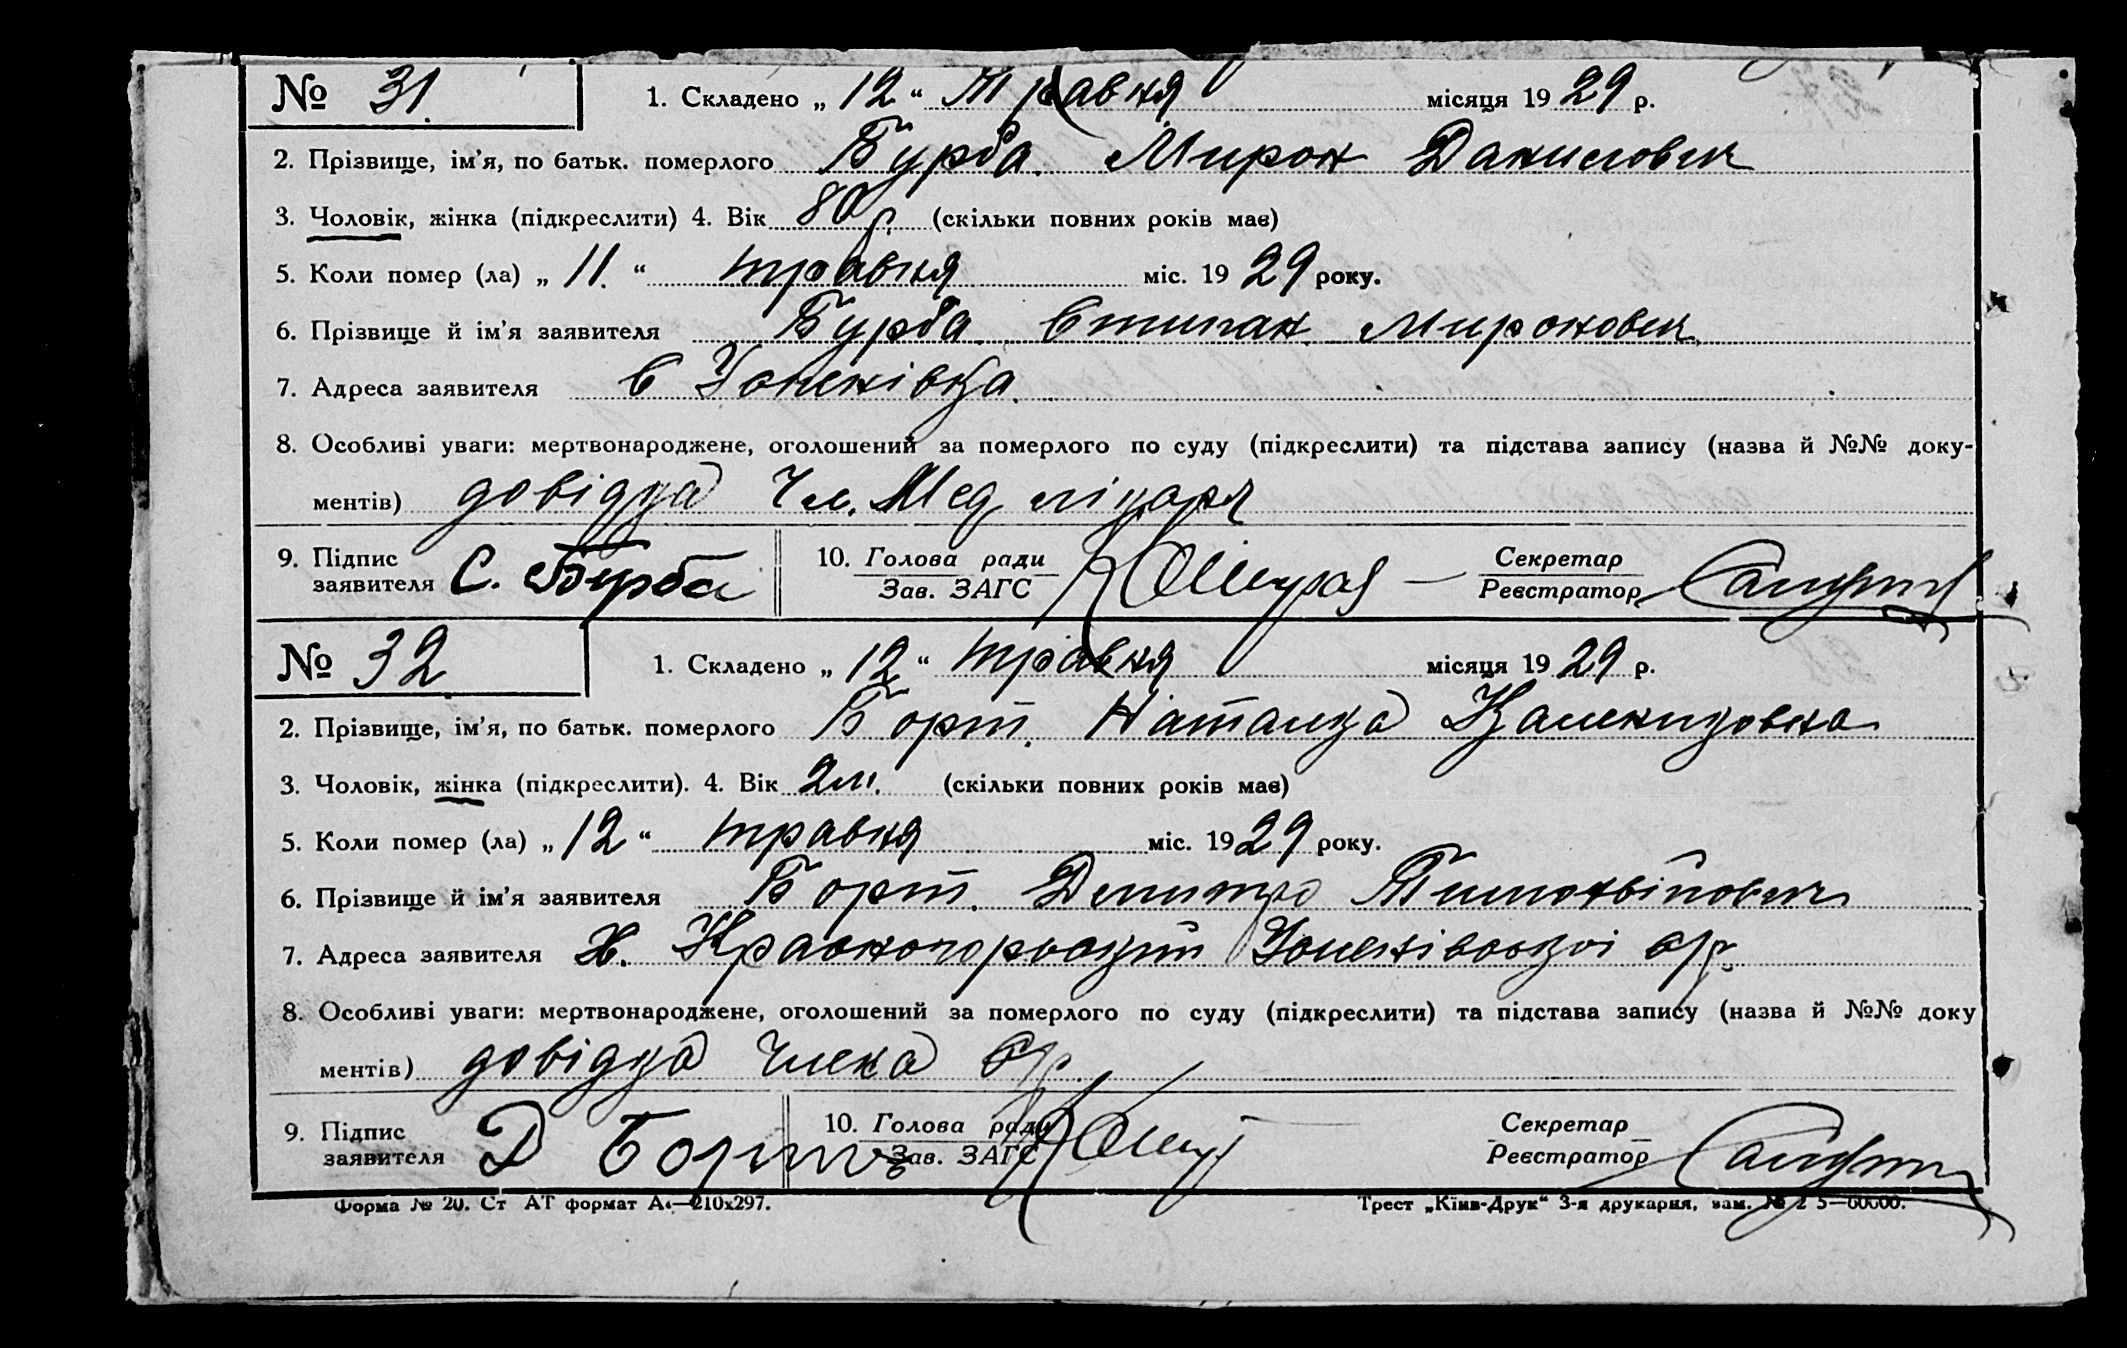 № 31. 1. Складено „ 12 “ Травня місяця 19 29 р.
2. Прізвище, ім'я, по батьк. померлого Бурба. Мирон Данилович
3. Чоловік, жінка (підкреслити) 4. Вік 80 р. (скільки повних років має)
5. Коли помер (ла) „ 11. “ травня міс. 19 29 року.
6. Прізвище й ім'я заявителя Бурба. Степан. Миронович.
7. Адреса заявителя с
8. Особливі уваги: мертвонароджене, оголошений за померлого по суду (підкреслити) та підстава запису (назва й №№ доку-
ментів) довідка Чл. Мед лікаря
9. Підпис заявителя С. Бурба 10. Голова ради Зав. ЗАГС Секретар Реєстратор
№ 32. 1. Складено „ 12 “ травня місяця 19 29 р.
2. Прізвище, ім'я, по батьк. померлого Борт. Наталка
3. Чоловік, жінка (підкреслити). 4. Вік 2 м. (скільки повних років має)
5. Коли помер (ла) „ 12 “ травня міс. 19 29 року.
6. Прізвище й ім'я заявителя Борт. Дмитро
7. Адреса заявителя Х. Красногорський с/р.
8. Особливі уваги: мертвонароджене, оголошений за померлого по суду (підкреслити) та підстава запису (назва й №№ доку
ментів) довідка члена с/р.
9. Підпис заявителя Д Борт 10. Голова ради Зав. ЗАГС Секретар Реєстратор
Форма № 20. Ст АТ формат А4—210х297. Трест „Київ-Друк“ 3-я друкарня, зам. №